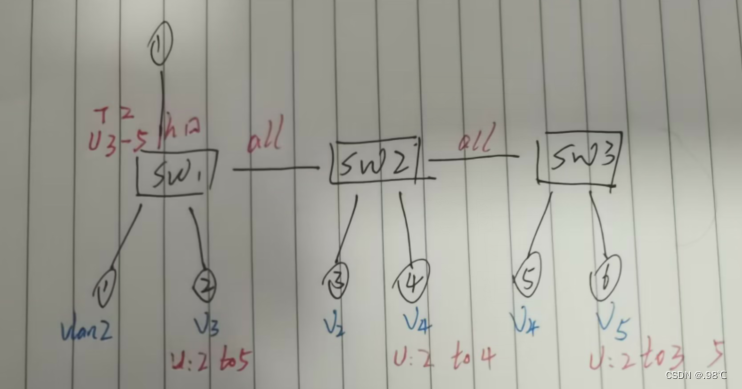 ①
T 2
U3-5
all
all
SW1
SW2
SW3
①
②
③
④
⑤
⑥
vlan2
V3
V2
V4
V4
V5
U:2 to5
U:2 to 4
U:2 to3 5
CSDN @.98℃